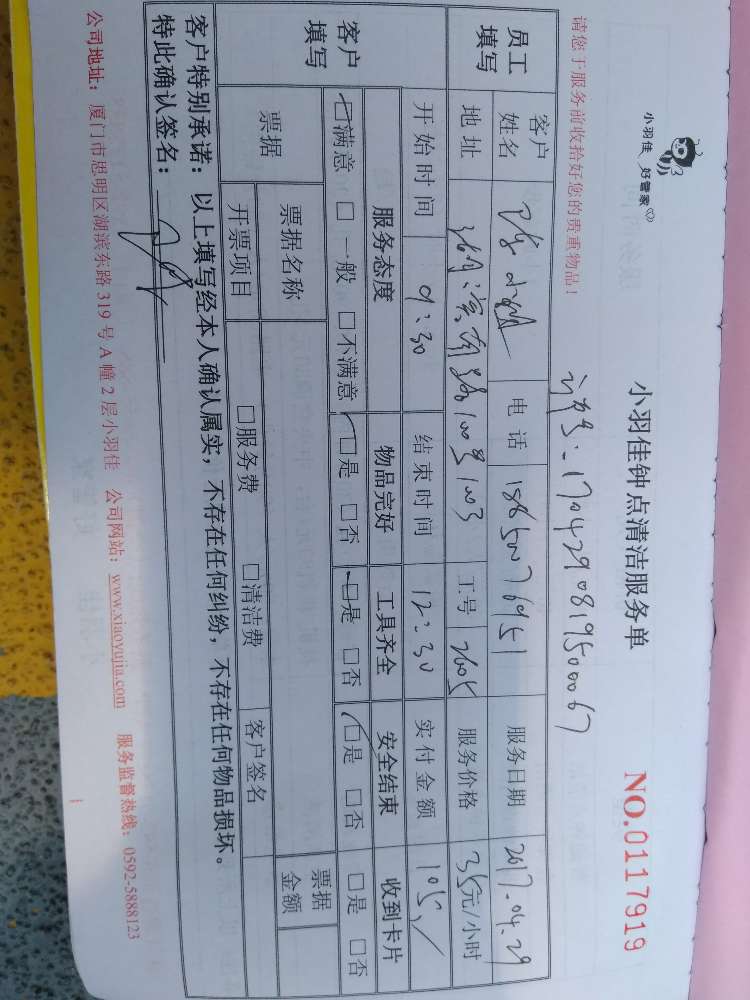 小羽佳 好管家
小羽佳钟点清洁服务单
NO.0117919
请您于服务前收拾好您的贵重物品！
1704290819500067
员工填写 客户姓名 电话 18650076951 服务日期 2017.04.29
地址 1003 工号 2605 服务价格 35元/小时
客户填写 开始时间 9:30 结束时间 12:30 实付金额 105
服务态度 物品完好 工具齐全 安全结束 收到卡片
□满意 □一般 □不满意 □是 □否 □是 □否 □是 □否 □是 □否
票据 票据名称 票据金额
开票项目 □服务费 □清洁费 客户签名
客户特别承诺：以上填写经本人确认属实，不存在任何纠纷，不存在任何物品损坏。
特此确认签名：
公司地址：厦门市思明区湖滨东路319号A幢2层小羽佳 公司网站：www.xiaoyujia.com 服务监督热线：0592-5888123